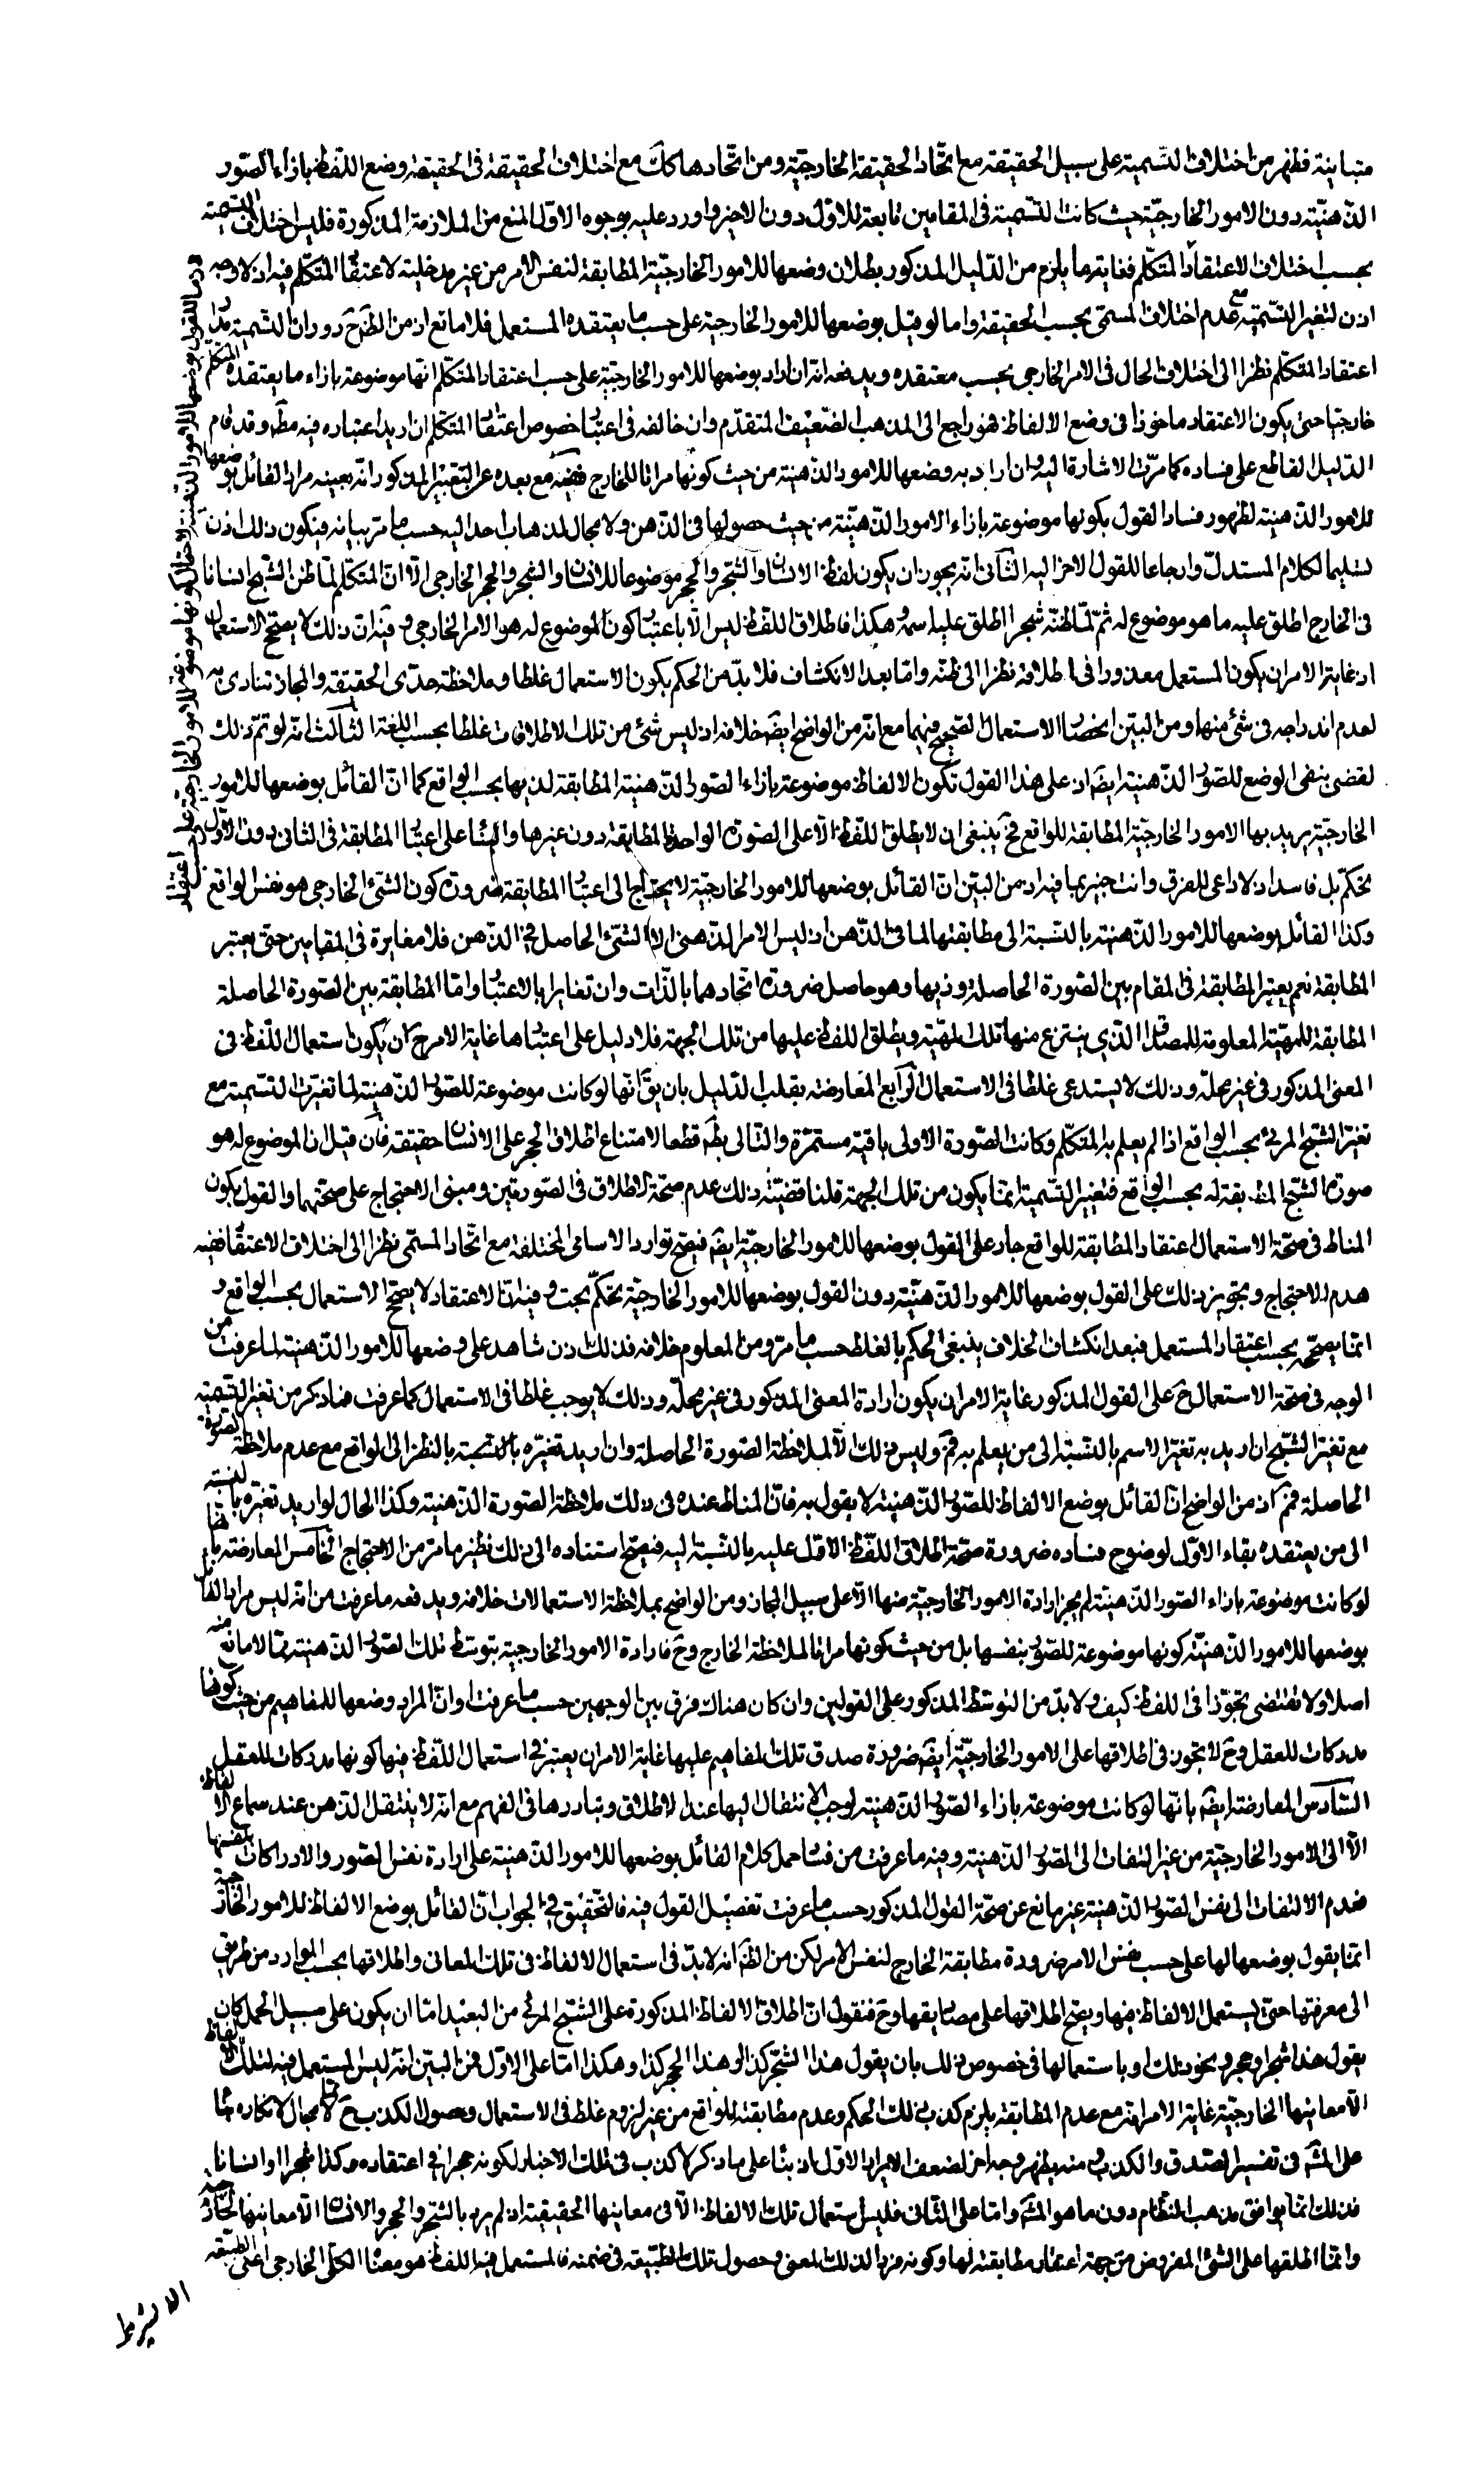 متباينة فظهر من اختلاف التسمية على سبيل الحقيقة مع اتحاد الحقيقة الخارجية ومن اتحادها كك مع اختلاف الحقيقة فى الحقيقة وضع اللفظ بازاء الصور
الذهنية دون الامور الخارجية حيث كانت التسمية فى المقامين تابعة للاول دون الاخير واورد عليه بوجوه الاول المنع من الملازمة المذكورة فليس اختلاف التسمية
بحسب اختلاف الاعتقاد المتكلم فغاية ما يلزم من الدليل المذكور بطلان وضعها للامور الخارجية المطابقة لنفس الامر من غير مدخلية لاعتقاد المتكلم فيه اذ لا وجه
اذن لتغير التسمية مع عدم اختلاف المسمى بحسب الحقيقة واما لو قيل بوضعها للامور الخارجية على حسب ما يعتقده المستعمل فلا مانع اذ من الظ ح دوران التسمية مدار
اعتقاد المتكلم نظرا الى اختلاف الحال فى الامر الخارجى بحسب معتقده ويدفعه انه ان اراد بوضعها للامور الخارجية على حسب اعتقاد المتكلم انها موضوعة بازاء ما يعتقده المتكلم
خارجيا حتى يكون الاعتقاد ماخوذا فى وضع الالفاظ فهو راجع الى المذهب الضعيف المتقدم وان خالفه فى اعتبار خصوص اعتقاد المتكلم ان اريد اعتباره فيه مط وقد قام
الدليل القاطع على فساده كما مرت الاشارة اليه وان اراد به وضعها للامور الذهنية من حيث كونها مراتا للخارج ففيه مع بعده عن التعبير المذكور انه بعينه مراد القائل بوضعها
للامور الذهنية لظهور فساد القول بكونها موضوعة بازاء الامور الذهنية من حيث حصولها فى الذهن ولا مجال لذهاب احد اليه حسب ما مر بيانه فيكون ذلك اذن
تسليما لكلام المستدل وارجاعا للقول الاخر اليه الثانى انه يجوز ان يكون لفظ الانسان والشجر والحجر موضوعا للانسان والشجر والحجر الخارجى الا ان المتكلم لما ظن الشبح انسانا
فى الخارج اطلق عليه ما هو موضوع له ثم لما ظنه شجرا اطلق عليه اسمه وهكذا فاطلاق اللفظ ليس الا باعتبار كون الموضوع له هو الامر الخارجى وفيه ان ذلك لا يصحح الاستعمال
اذ غاية الامر ان يكون المستعمل معذورا فى اطلاقه نظرا الى ظنه واما بعد الانكشاف فلا بد من الحكم بكون الاستعمال غلطا وملاحظة حدى الحقيقة والمجاز تنادى به
لعدم اندراجه فى شئ منها ومن البين انحصار الاستعمال الصحيح فيهما مع انه من الواضح ايضا خلافه اذ ليس شئ من تلك الاطلاقات غلطا بحسب اللغة الثالث انه لو تم ذلك
لقضى بنفى الوضع للصور الذهنية ايضا اذ على هذا القول تكون الالفاظ موضوعة بازاء الصور الذهنية المطابقة لذيها بحسب الواقع كما ان القائل بوضعها للامور
الخارجية يريد بها الامور الخارجية المطابقة للواقع فح ينبغى ان لا يطلق اللفظ الا على الصورة الواحدة المطابقة دون غيرها والبناء على اعتبار المطابقة فى الثانى دون الاول
تحكم بل فاسد اذ لا داعى للفرق وانت خبير بما فيه اذ من البين ان القائل بوضعها للامور الخارجية لا يحتاج الى اعتبار المطابقة ضرورة كون الشئ الخارجى هو نفس الواقع
وكذا القائل بوضعها للامور الذهنية بالنسبة الى مطابقتها لما فى الذهن اذ ليس الامر الذهنى الا الشئ الحاصل فى الذهن فلا مغايرة فى المقامين حتى يعتبر
المطابقة نعم يعتبر المطابقة فى المقام بين الصورة الحاصلة وذيها وهو حاصل ضرورة اتحادهما بالذات وان تغايرا بالاعتبار واما المطابقة بين الصورة الحاصلة
المطابقة للمهية المعلومة للمصداق الذى ينتزع منها تلك المهية ويطلق اللفظ عليها من تلك الجهة فلا دليل على اعتبارها غاية الامر ح ان يكون استعمال اللفظ فى
المعنى المذكور فى غير محله وذلك لا يستدعى غلطا فى الاستعمال الرابع المعارضة بقلب الدليل بان يق انها لو كانت موضوعة للصور الذهنية لما تغيرت التسمية مع
تغير الشبح المرئى بحسب الواقع اذا لم يعلم به المتكلم وكانت الصورة الاولى باقية مستمرة والتالى بط قطعا لامتناع اطلاق الحجر على الانسان حقيقة فان قيل ان الموضوع له هو
صورة الشبح المطابقة له بحسب الواقع فتغير التسمية انما يكون من تلك الجهة قلنا قضية ذلك عدم صحة الاطلاق فى الصورتين ومبنى الاحتجاج على صحتهما والقول بكون
المناط فى صحة الاستعمال اعتقاد المطابقة للواقع جار على القول بوضعها للامور الخارجية ايضا فيصح توارد الاسامى المختلفة مع اتحاد المسمى نظرا الى اختلاف الاعتقاد ففيه
هدم للاحتجاج وتجويز ذلك على القول بوضعها للامور الذهنية دون القول بوضعها للامور الخارجية تحكم بحت وفيه ان الاعتقاد لا يصحح الاستعمال بحسب الواقع و
انما يصححه بحسب اعتقاد المستعمل فبعد انكشاف الخلاف ينبغى الحكم بالغلط حسب ما مر ومن المعلوم خلافه فذلك اذن شاهد على وضعها للامور الذهنية لما عرفت من
الوجه فى صحة الاستعمال ح على القول المذكور غاية الامر ان يكون ارادة المعنى المذكور فى غير محله وذلك لا يوجب غلطا فى الاستعمال كما عرفت فما ذكر من تغير التسمية
مع تغير الشبح ان اريد به تغير الاسم بالنسبة الى من يعلم به فم وليس ذلك الا لملاحظة الصورة الحاصلة وان اريد تغيره بالنسبة بالنظر الى الواقع مع عدم ملاحظة الصورة
الحاصلة فم اذ من الواضح ان القائل بوضع الالفاظ للصور الذهنية لا يقول به فان المناط عنده فى ذلك ملاحظة الصورة الذهنية وكذا الحال لو اريد تغيره بالنسبة
الى من يعتقده بقاء الاول لوضوح فساده ضرورة صحة اطلاق اللفظ الاول عليه بالنسبة اليه فيصح استناده الى ذلك نظير ما مر من الاحتجاج الخامس المعارضة بانها
لو كانت موضوعة بازاء الصور الذهنية لم يجز ارادة الامور الخارجية منها الا على سبيل المجاز ومن الواضح بملاحظة الاستعمالات خلافه ويدفعه ما عرفت من انه ليس مراد القائل
بوضعها للامور الذهنية كونها موضوعة للصور بنفسها بل من حيث كونها مراتا لملاحظة الخارج وح فارادة الامور الخارجية بتوسط تلك الصور الذهنية مما لا مانع منه
اصلا ولا تقتضى تجوزا فى اللفظ كيف ولا بد من التوسط المذكور على القولين وان كان هناك فرق بين الوجهين حسب ما عرفت او ان المراد وضعها للمفاهيم من حيث كونها
مدركات للعقل وح لا تجوز فى اطلاقها على الامور الخارجية ايضا ضرورة صدق تلك المفاهيم عليها غاية الامر ان يعتبر فى استعمال اللفظ فيها كونها مدركات للعقل
السادس المعارضة ايضا بانها لو كانت موضوعة بازاء الصور الذهنية لوجب الانتقال اليها عند الاطلاق وتبادرها فى الفهم مع انه لا ينتقل الذهن عند سماع الالفاظ
الا الى الامور الخارجية من غير التفات الى الصور الذهنية وفيه ما عرفت من فساد حمل كلام القائل بوضعها للامور الذهنية على ارادة نفس الصور والادراكات بنفسها
فعدم الالتفات الى نفس الصور الذهنية غير مانع عن صحة القول المذكور حسب ما عرفت تفصيل القول فيه فالتحقيق فى الجواب ان القائل بوضع الالفاظ للامور الخارجية
انما يقول بوضعها لها على حسب نفس الامر ضرورة مطابقة الخارج لنفس الامر لكن من الظ انه لا بد فى استعمال الالفاظ فى تلك المعانى واطلاقها بحسب الموارد من طريق
الى معرفتها حتى يستعمل الالفاظ فيها ويصح اطلاقها على مصاديقها وح فنقول ان اطلاق الالفاظ المذكورة على الشبح المرئى من البعيد اما ان يكون على سبيل الحمل كان
يقول هذا شجر او حجر ونحو ذلك او باستعمالها فى خصوص ذلك بان يقول هذا الشجر كذا او هذا الحجر كذا وهكذا اما على الاول فمن البين انه ليس المستعمل فيه لتلك الالفاظ
الا معانيها الخارجية غاية الامر انه مع عدم المطابقة يلزم كذب ذلك الحكم وعدم مطابقته للواقع من غير لزوم غلط فى الاستعمال وحصول الكذب ح مما لا مجال لانكاره بناء
على المش فى تفسير الصدق والكذب ومنه يظهر وجه اخر لضعف الايراد الاول اذ بناء على ما ذكر لا كذب فى تلك الاخبار لكونه حجرا فى اعتقاده وكذا شجرا او انسانا
فذلك انما يوافق مذهب النظام دون ما هو المش واما على الثانى فليس استعمال تلك الالفاظ الا فى معانيها الحقيقية اذ لم يرد بالشجر والحجر والانسان الا معانيها الخارجية
وانما اطلقها على الشئ المفروض من جهة اعتقاد مطابقته لها وكونه فردا لذلك المعنى وحصول تلك الطبيعة فى ضمنه فالمستعمل فيه اللفظ هو معناه الكلى الخارجى اعنى الطبيعة
لا بشرط